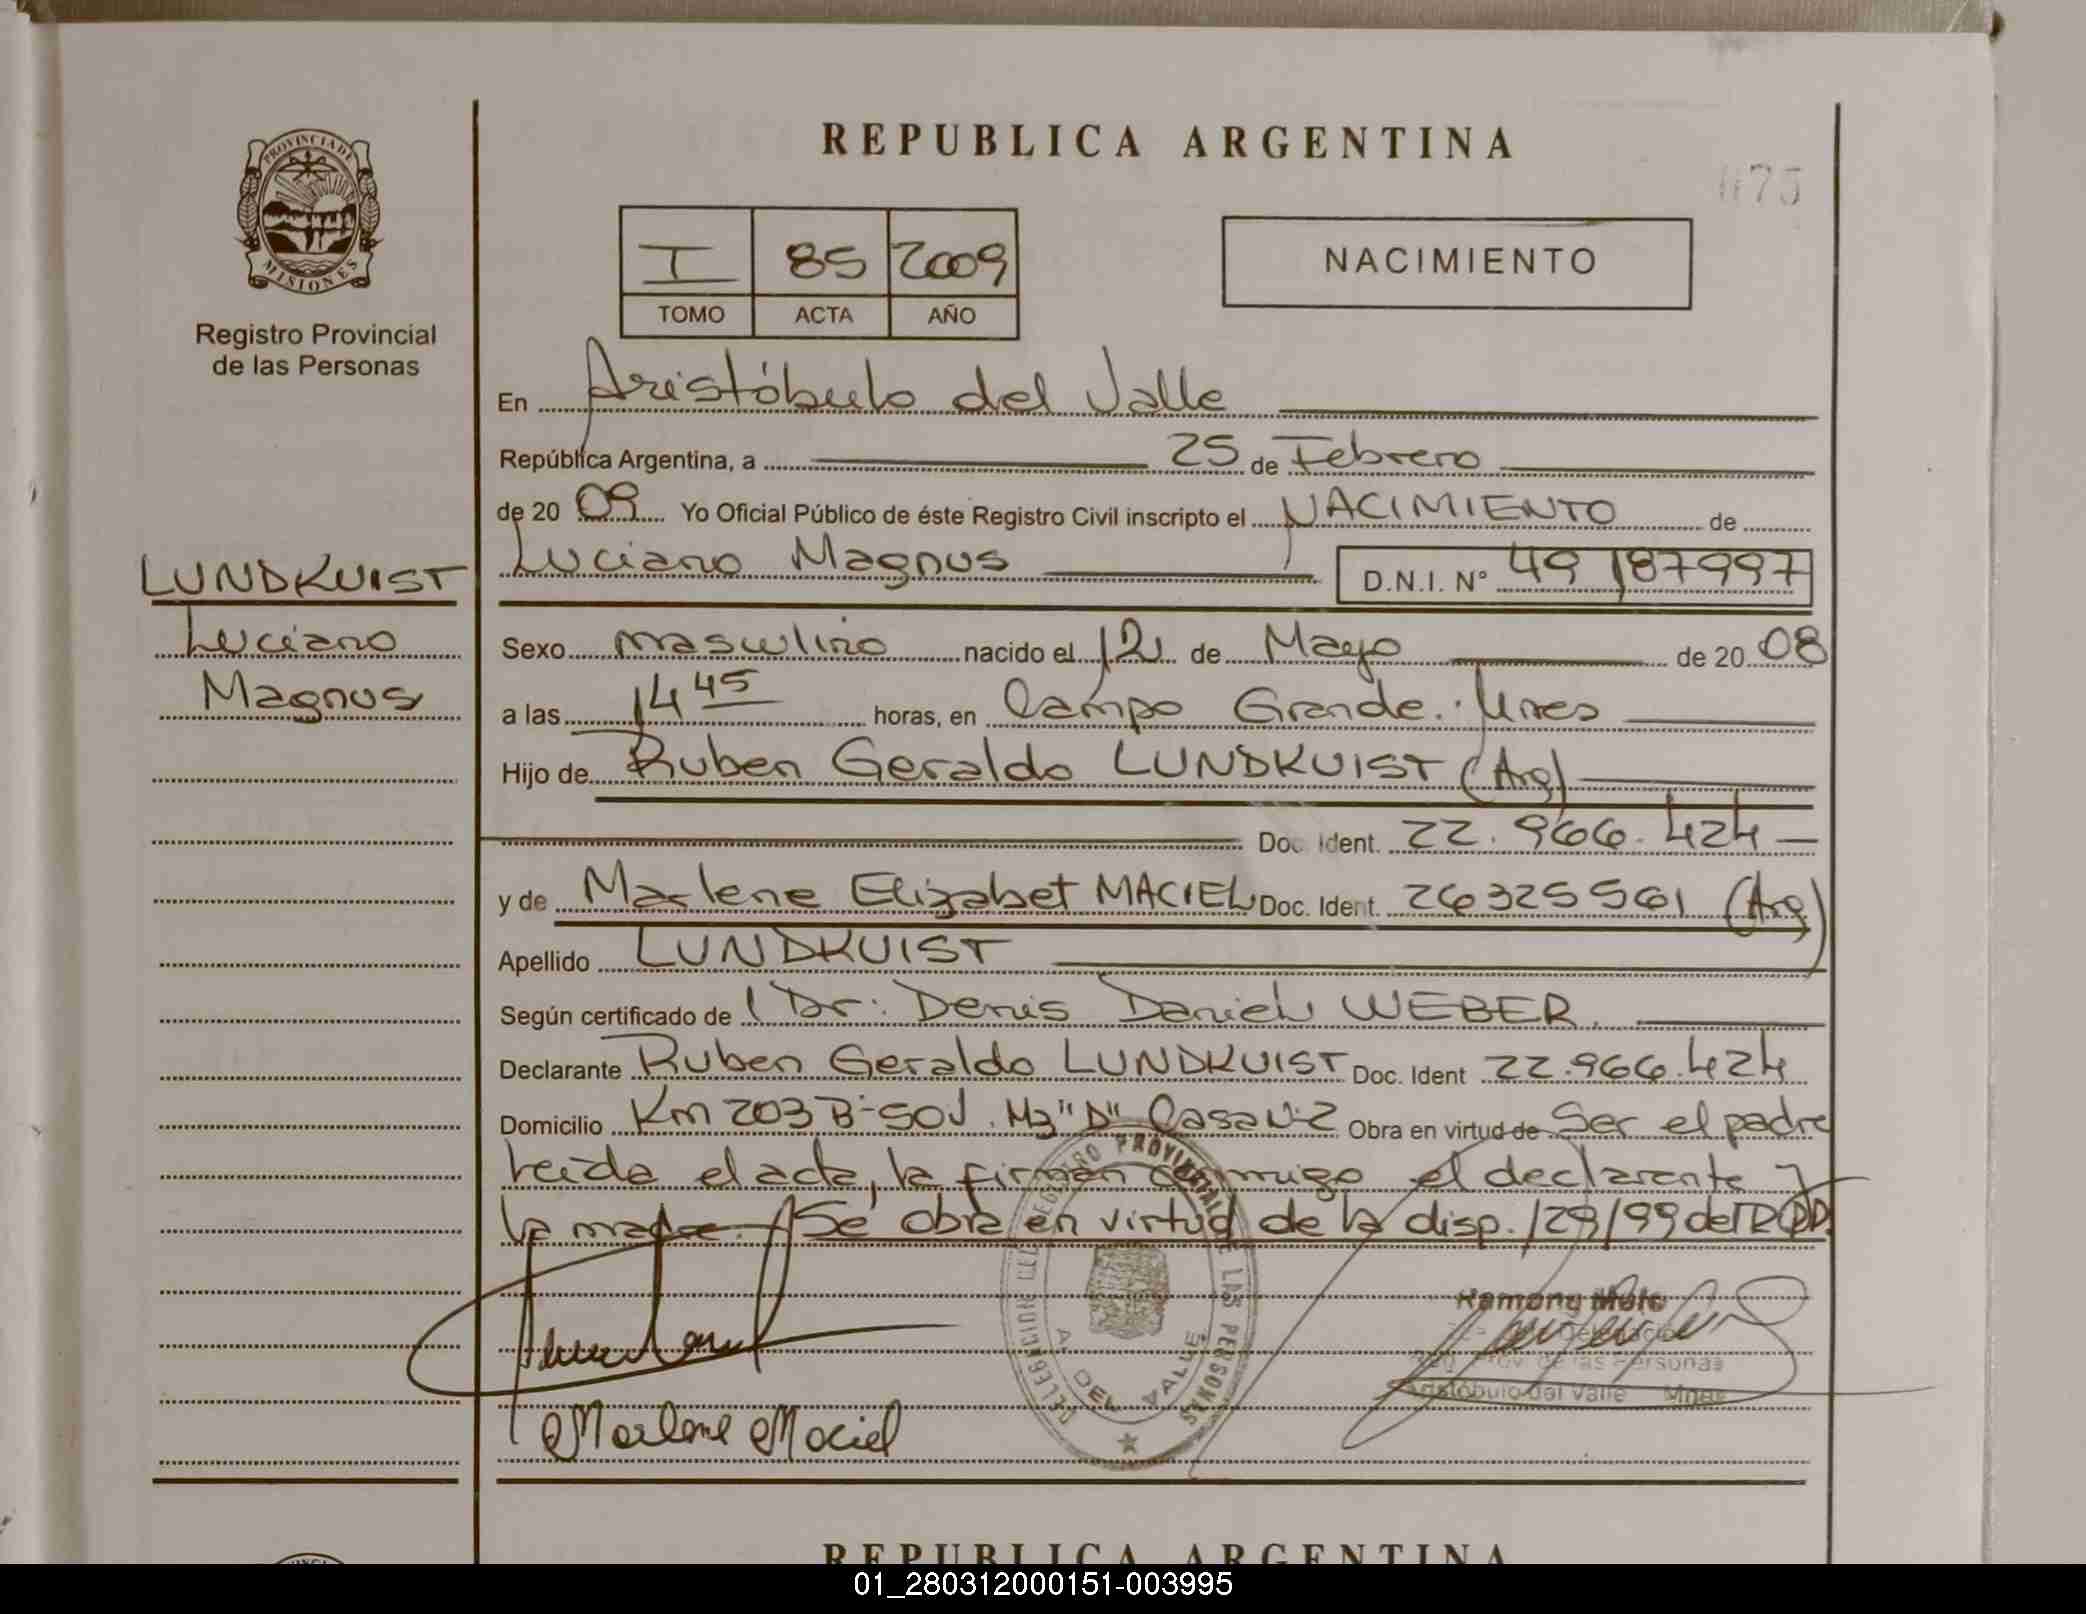 REPUBLICA ARGENTINA
PROVINCIA DE MISIONES
Registro Provincial
de las Personas
I 85 2009
TOMO ACTA AÑO
NACIMIENTO
En Aristóbulo del Valle
República Argentina, a 25 de Febrero
de 20 09 Yo Oficial Público de éste Registro Civil inscripto el NACIMIENTO de
LUNDKUIST
Luciano
Magnus
Luciano Magnus D.N.I. N° 49187997
Sexo masculino nacido el 12 de Mayo de 20 08
a las 14 45 horas, en Campo Grande. Mnes
Hijo de Ruben Geraldo LUNDKUIST (Arg)
Doc. Ident. 22.966.424
y de Marlene Elizabet MACIEL Doc. Ident. 26325561 (Arg)
Apellido LUNDKUIST
Según certificado de Dr. Denis Daniel WEBER.
Declarante Ruben Geraldo LUNDKUIST Doc. Ident 22.966.424
Domicilio Km 203 B-SOJ. Mz "D" Casa N-2 Obra en virtud de Ser el padre
Leída el acta, la firman conmigo el declarante y
la madre. Se obra en virtud de la disp. 129/99 del
DELEGACION DEL REGISTRO PROVINCIAL DE LAS PERSONAS
A. DEL VALLE
Reg. Prov. de las Personas
Aristóbulo del Valle Mnes
Marlene Maciel
REPUBLICA ARGENTINA
01_280312000151-003995